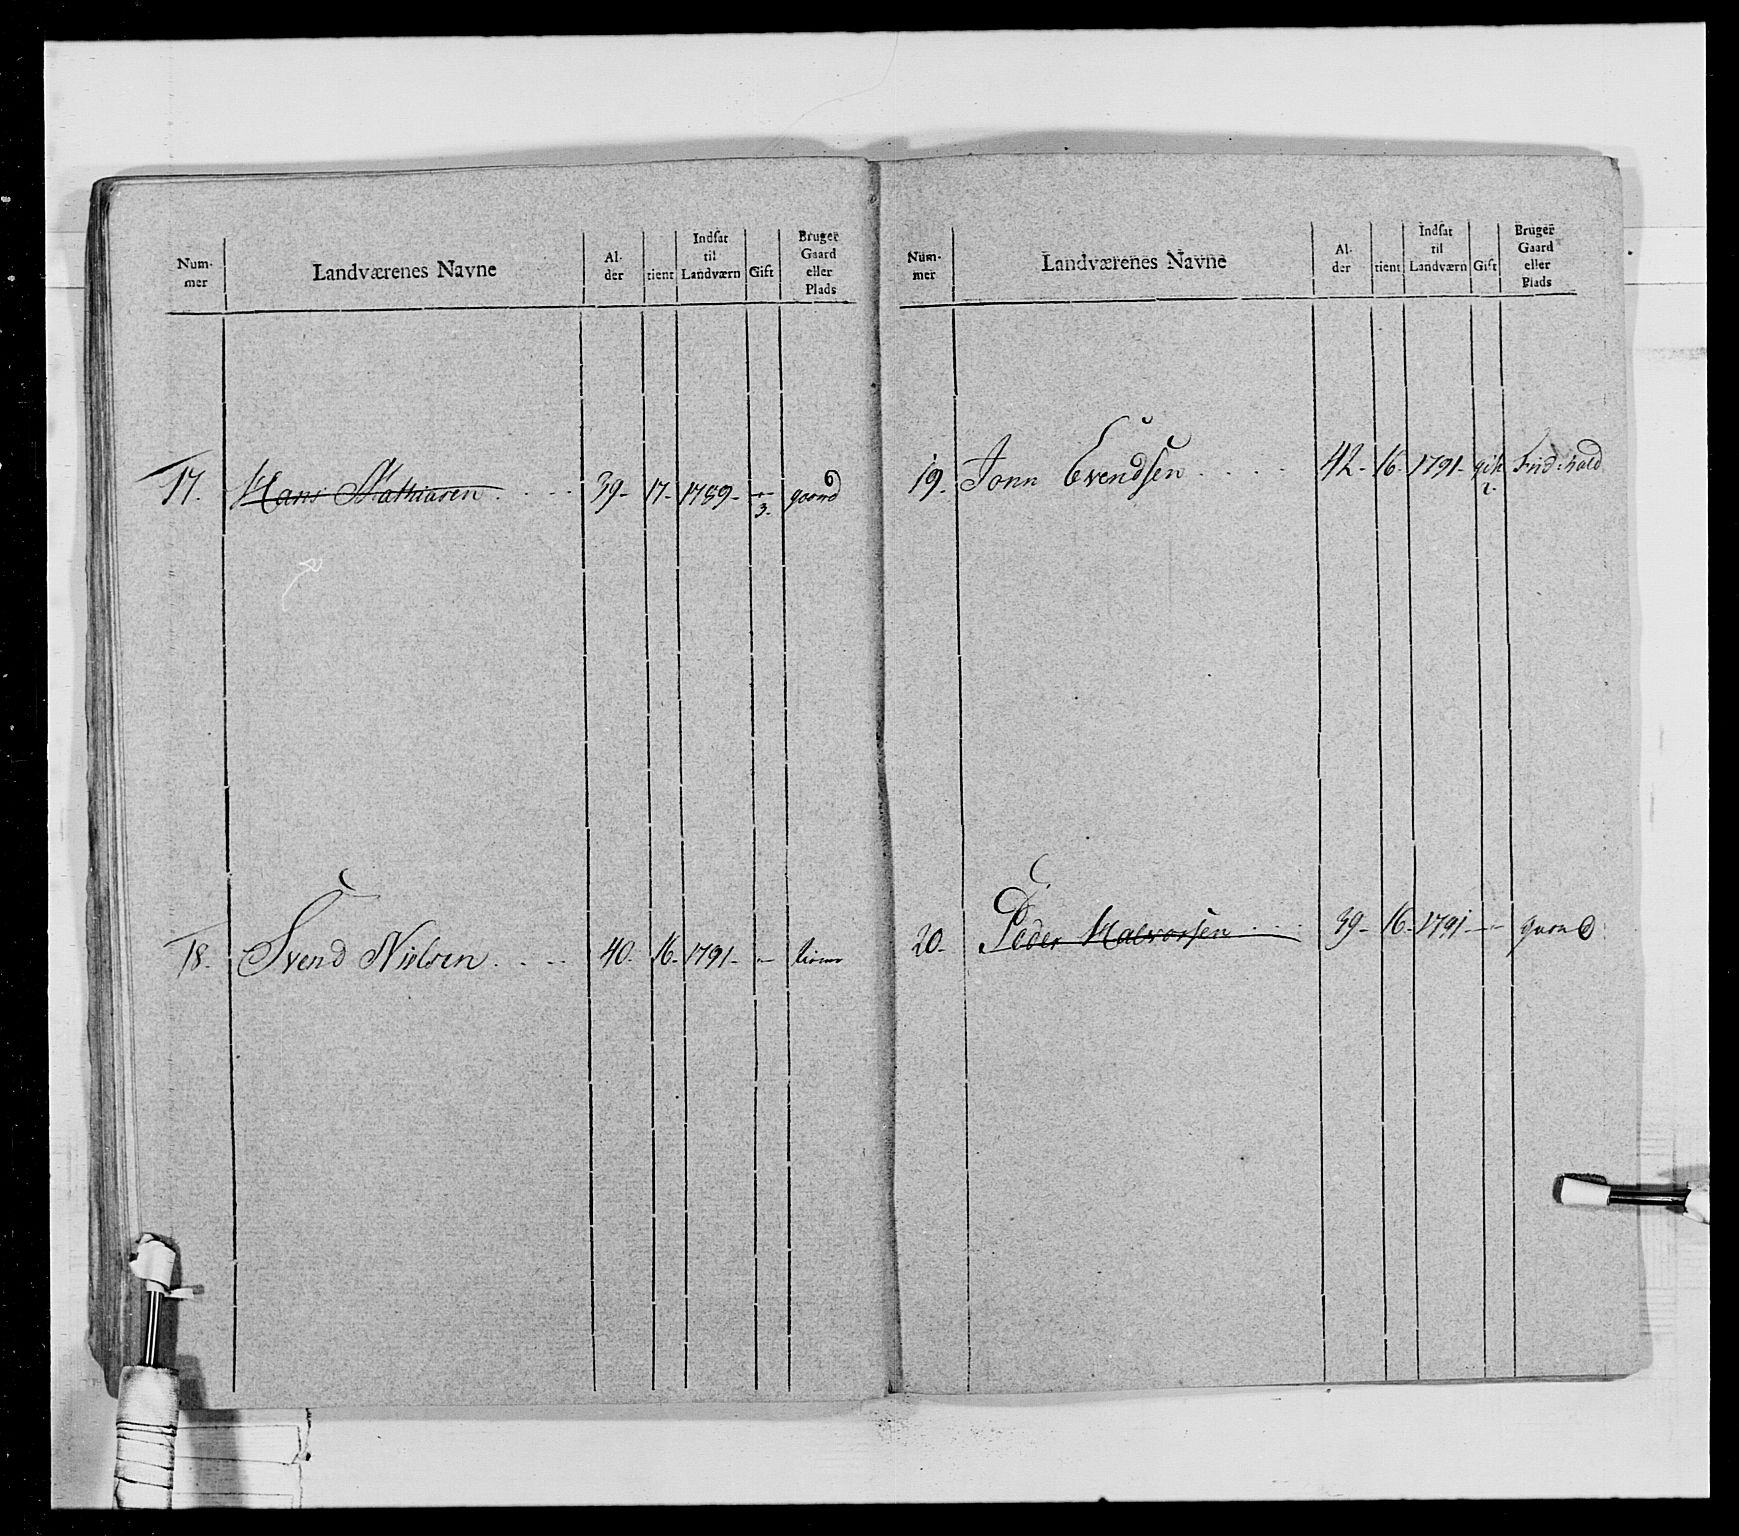 Num-
mer
Landværenes Navne
Al-
der
tient
Indsat
til
Landværn
Gift
Bruger
Gaard
eller
Plads
17. Hans Mathiasen 39- 17- 1789- — gaard
3.
18. Svend Nielsen 40- 16- 1791- —
Num-
mer
Landværenes Navne
Al-
der
tient
Indsat
til
Landværn
Gift
Bruger
Gaard
eller
Plads
19. Jonn Evendsen 42- 16- 1791- gift
2.
20. Peder Halvorsen 39- 16- 1791- — gaard